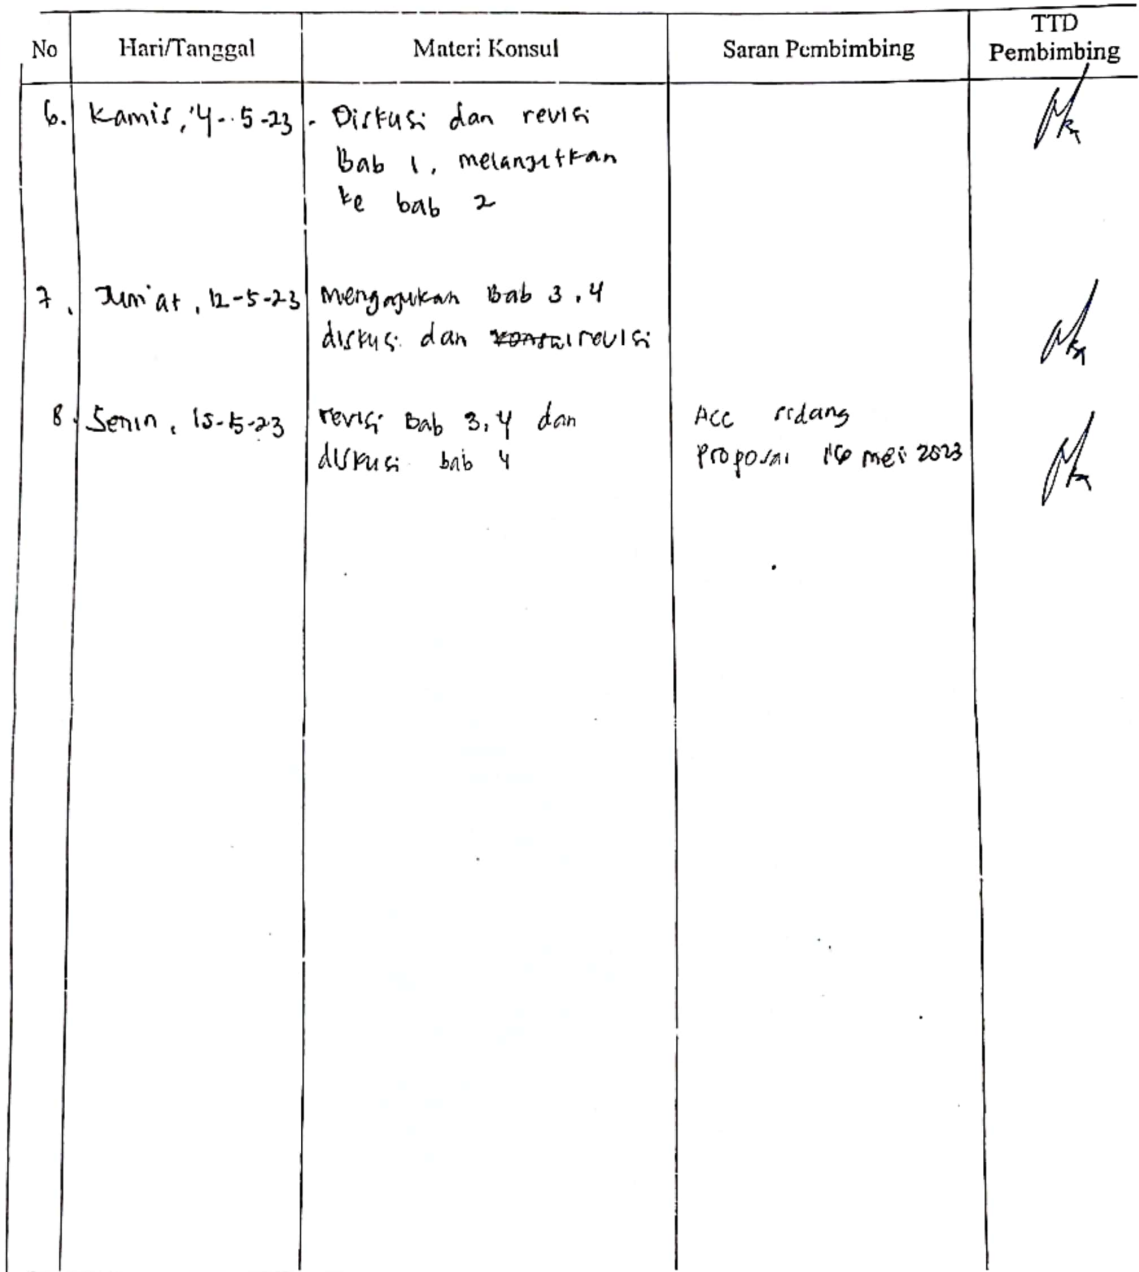 No Hari/Tanggal Materi Konsul Saran Pembimbing TTD Pembimbing
6. Kamis, 4-5-23 - Diskusi dan revisi
Bab 1, melanjutkan
ke bab 2
7. Jum'at, 12-5-23 Mengajukan Bab 3,4
diskusi dan revisi
8. Senin, 15-5-23 revisi Bab 3,4 dan Acc sidang
diskusi bab 4 Proposal mei 2023